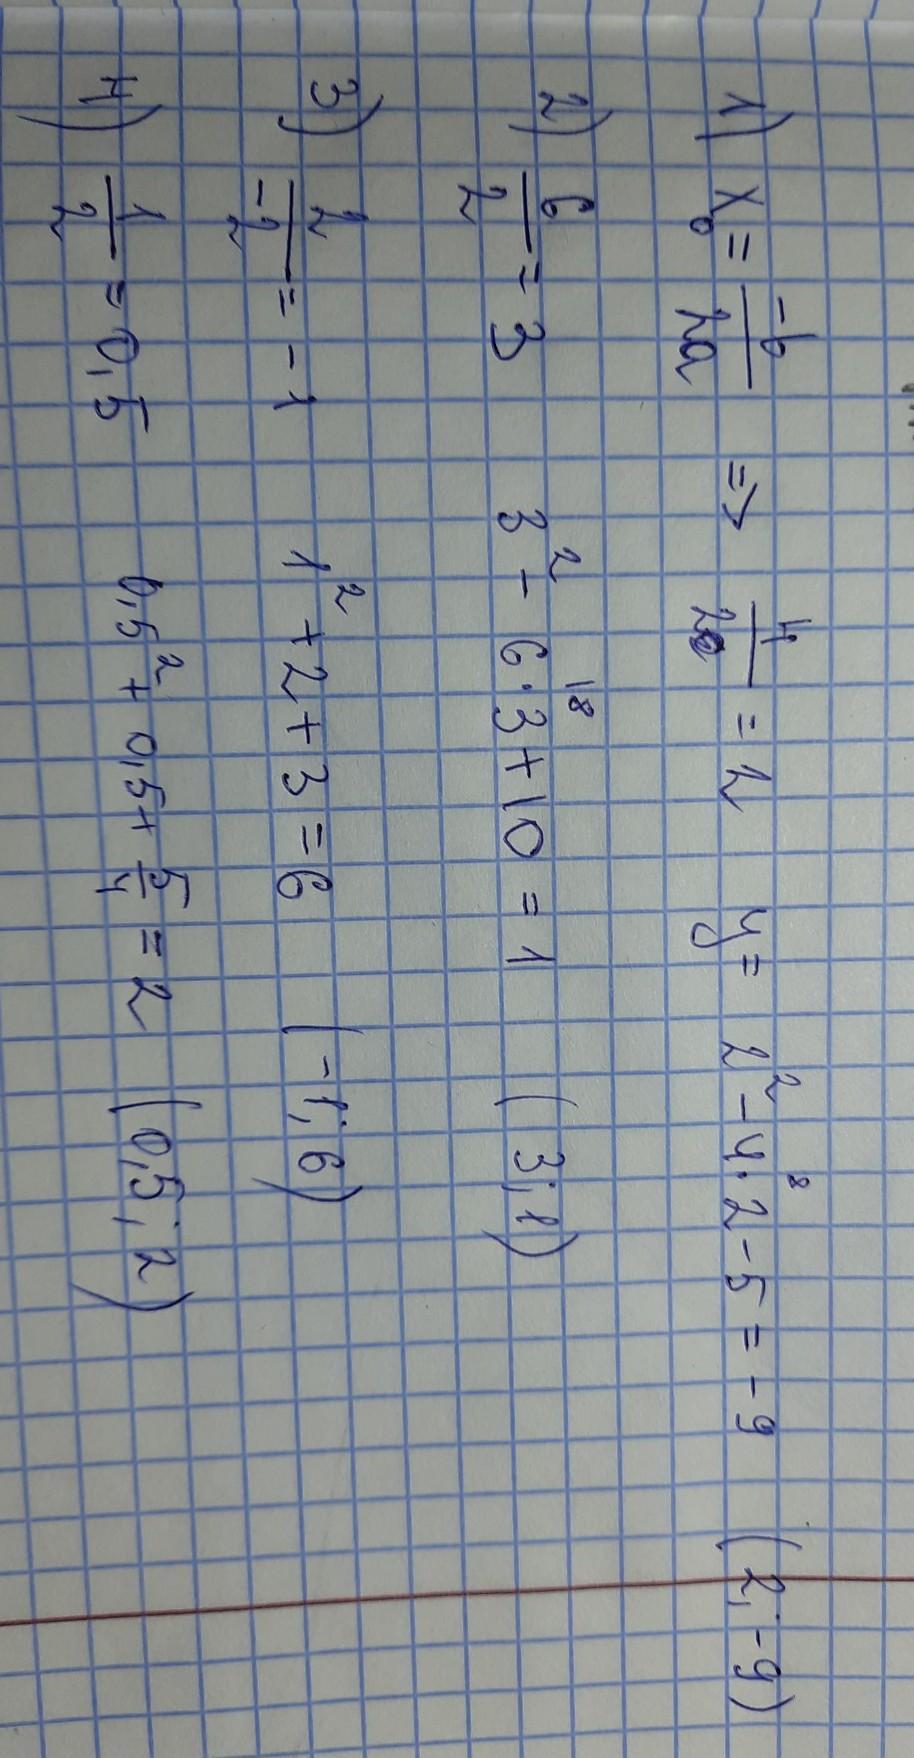 1) x₀ = -b/2a => 4/2 = 2 y = 2² - 4·2 - 5 = -9 (2; -9)
8
2) 6/2 = 3 3² - 6·3 + 10 = 1 (3; 1)
18
3) 2/-2 = -1 1² + 2 + 3 = 6 (-1; 6)
4) 1/2 = 0,5 0,5² + 0,5 + 5/4 = 2 (0,5; 2)